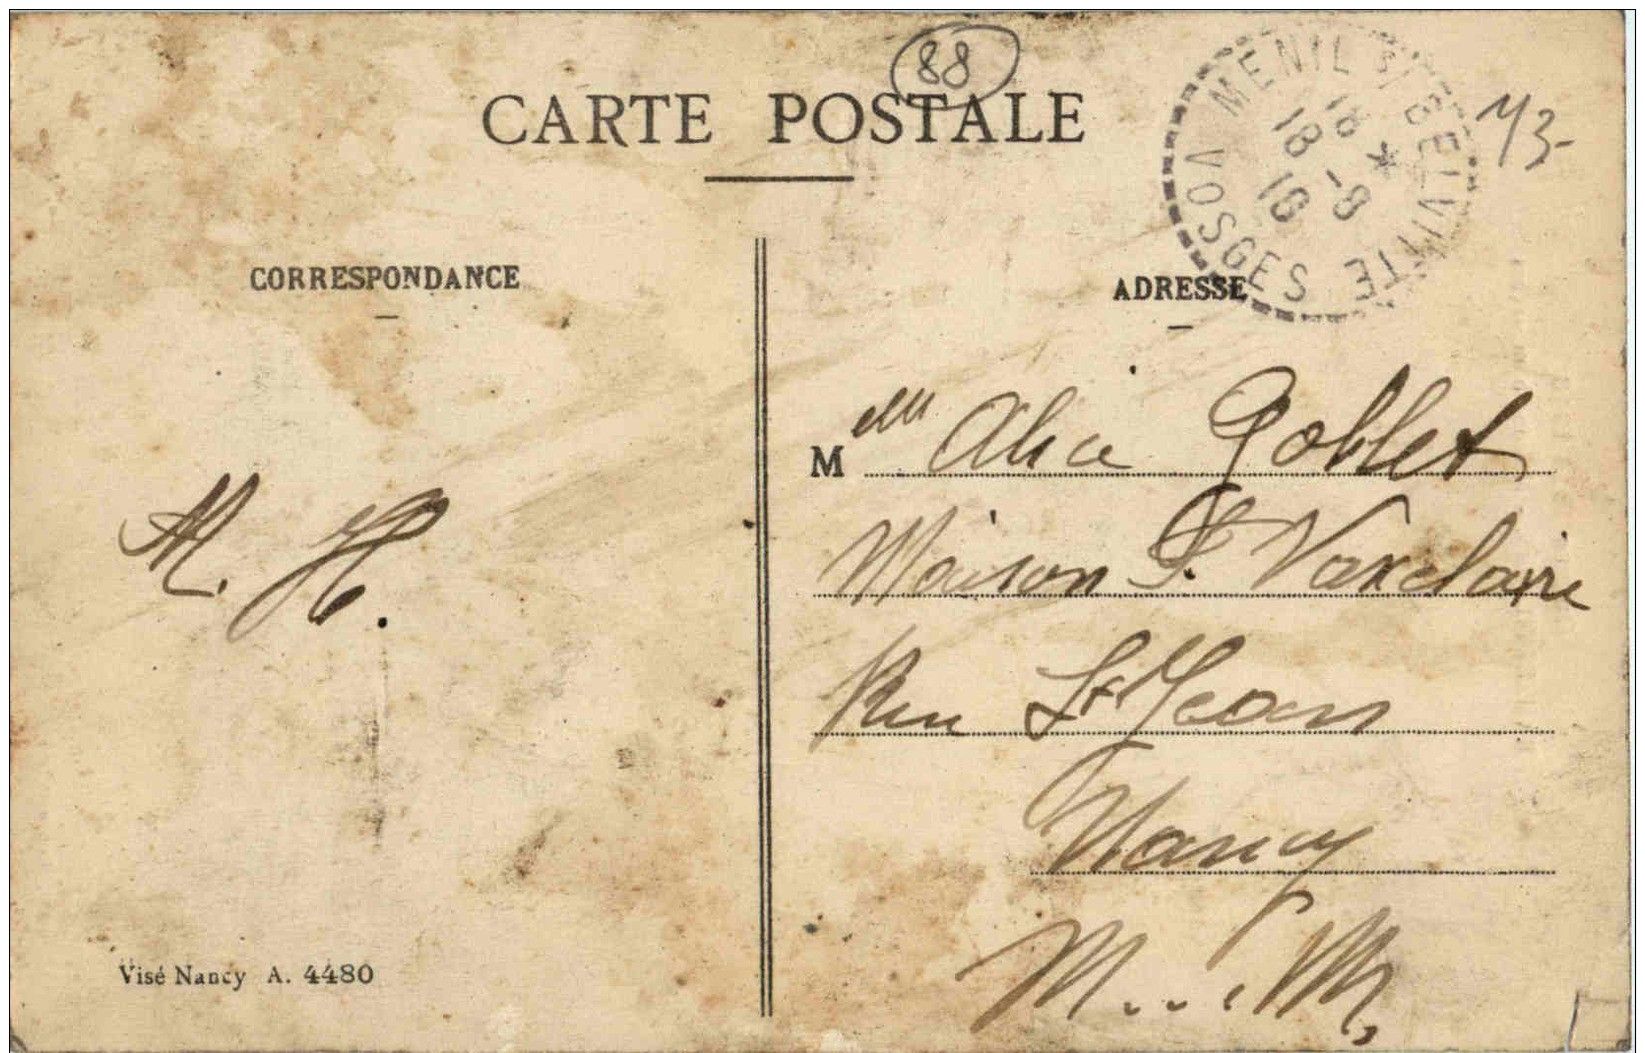 88
CARTE POSTALE
MENIL S/ BELVITTE
18 *
18 -8
16
VOSGES
CORRESPONDANCE
ADRESSE
Melle Alice Goblet
Maison F. Vaxelaire
Rue St Jean
Nancy
M. H.
M... M.
Visé Nancy A. 4480